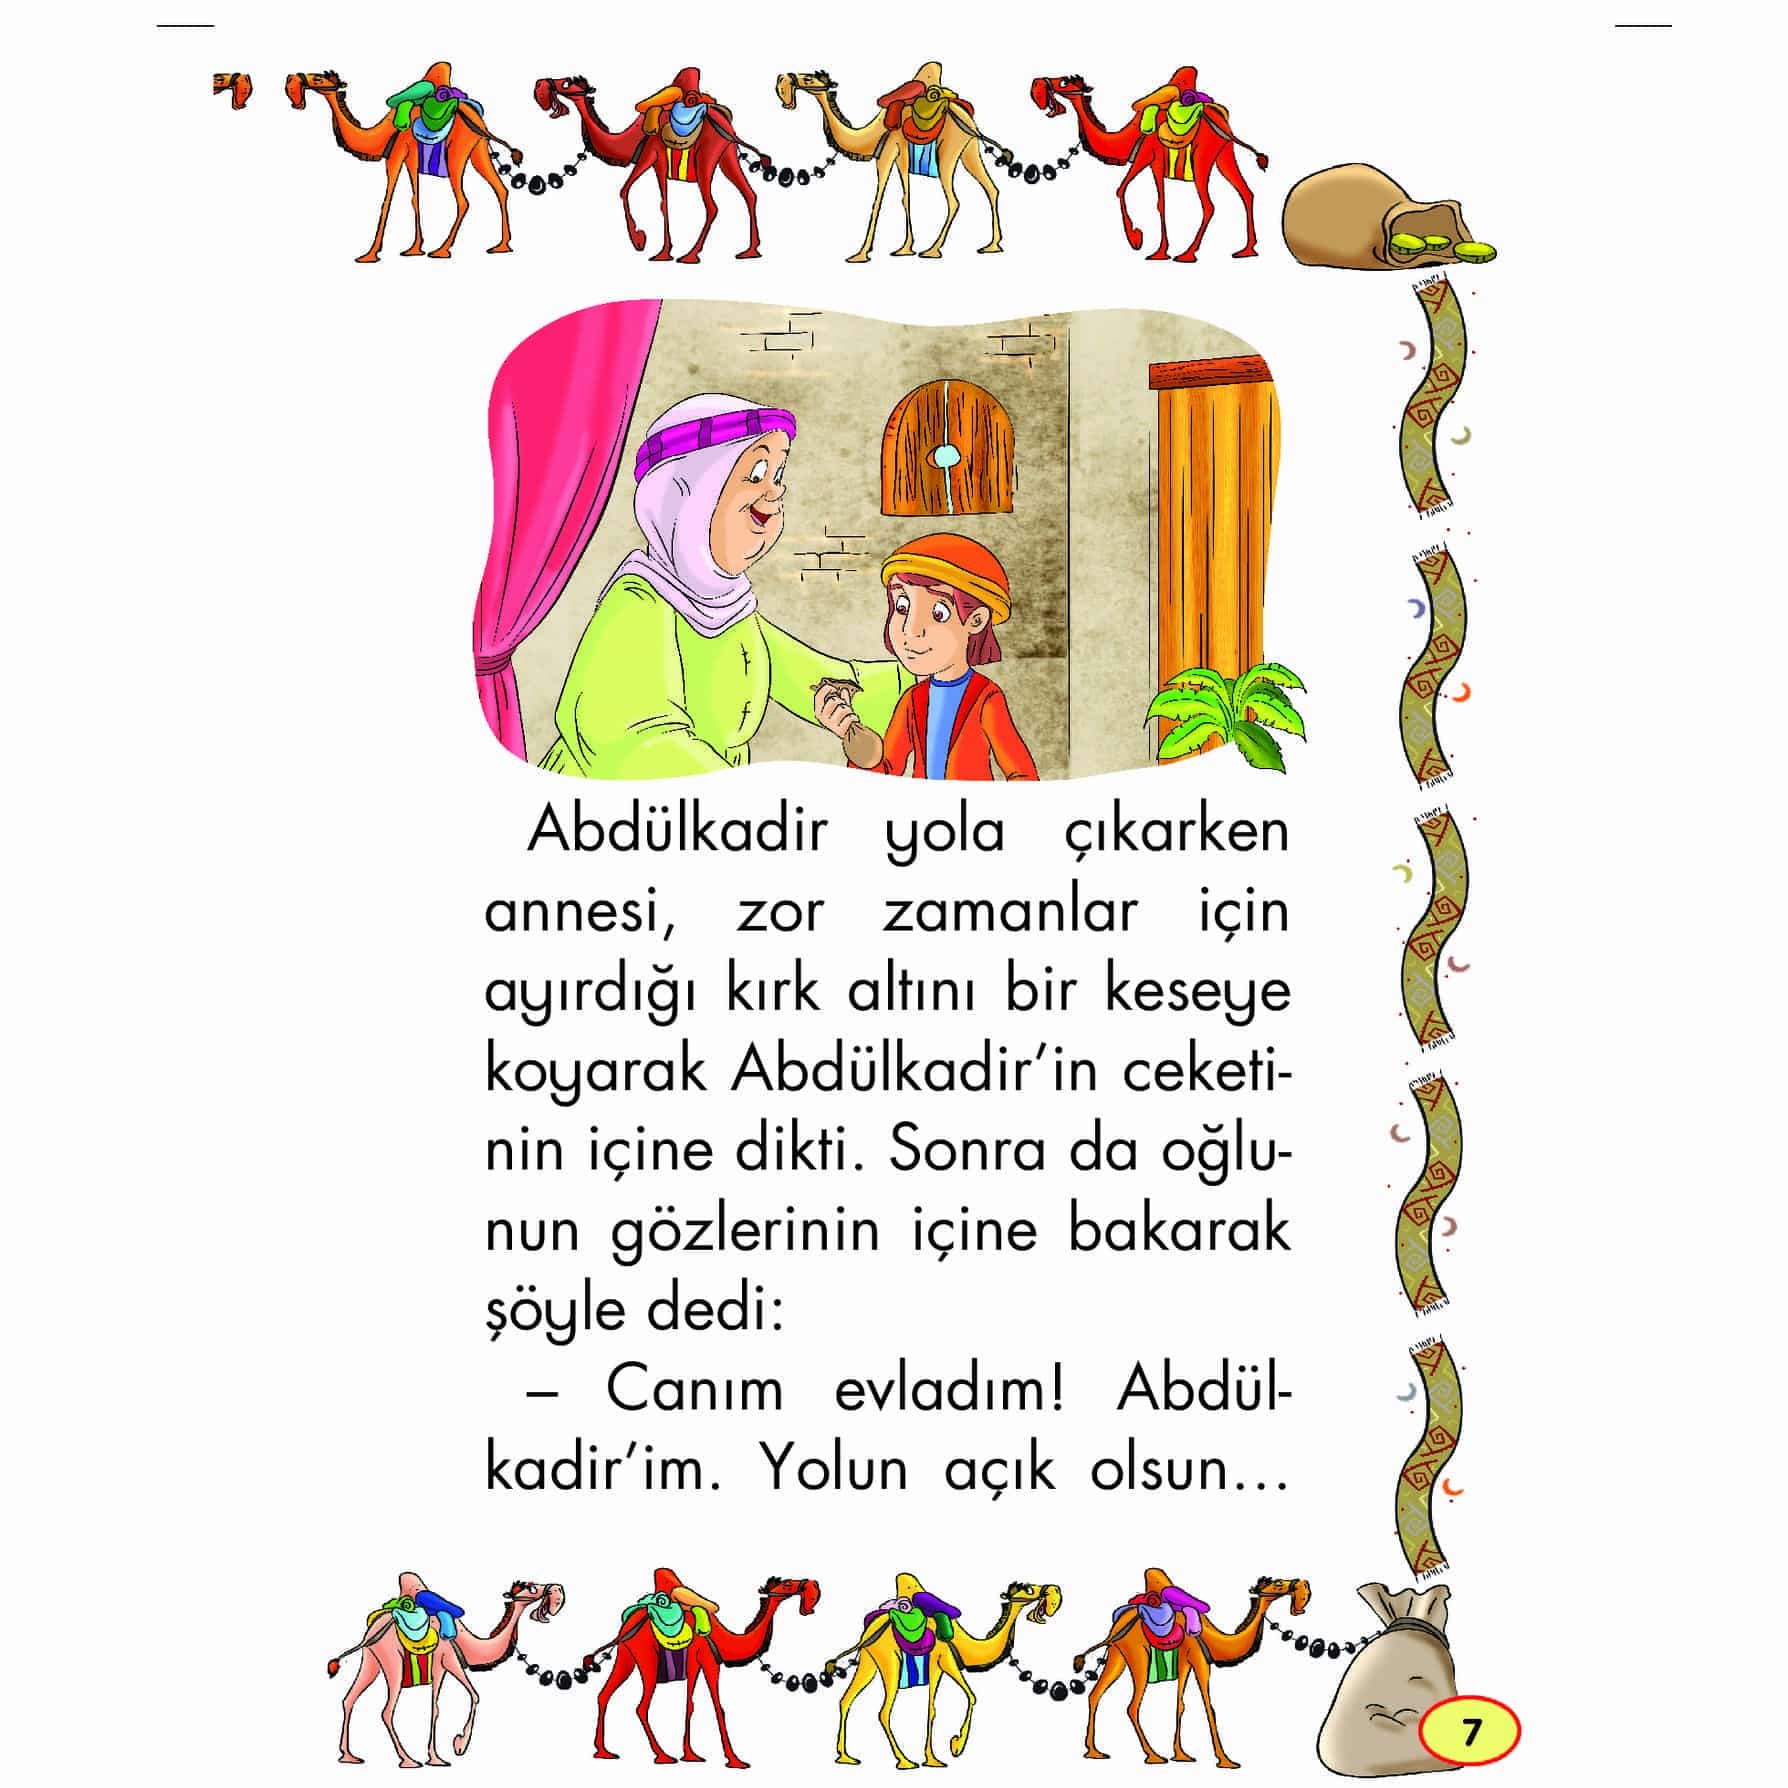 Abdülkadir yola çıkarken
annesi, zor zamanlar için
ayırdığı kırk altını bir keseye
koyarak Abdülkadir’in ceketi-
nin içine dikti. Sonra da oğlu-
nun gözlerinin içine bakarak
şöyle dedi:
– Canım evladım! Abdül-
kadir’im. Yolun açık olsun...
7